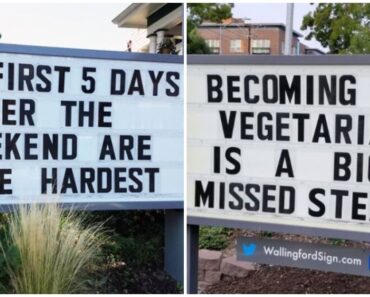 FIRST 5 DAYS
ER THE
EKEND ARE
E HARDEST
BECOMING
VEGETARI
IS A BI
MISSED STE
WallingfordSign.com